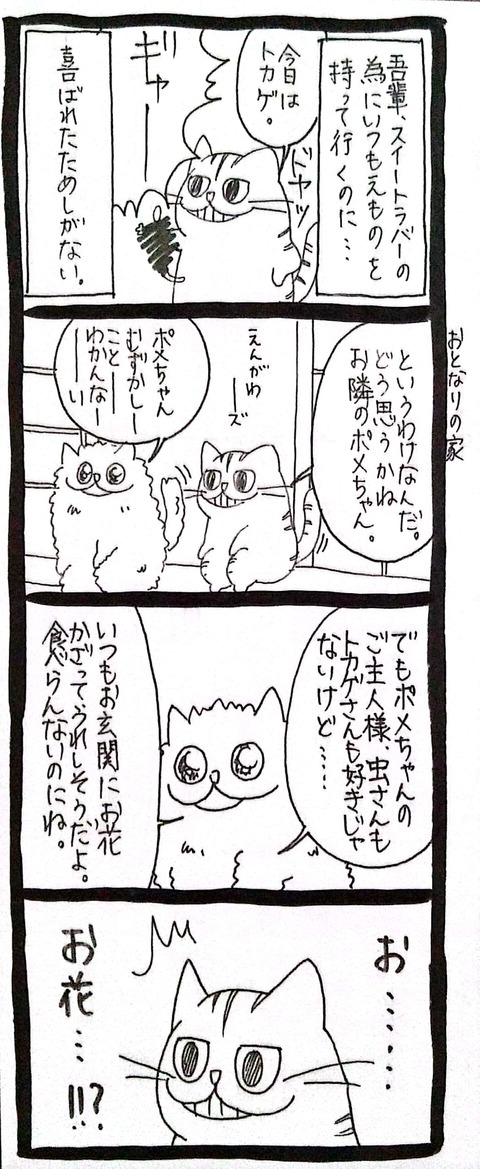 吾輩、スイートラバーの
為にいつもえものを
持って行くのに…
今日は
トカゲ。
ドヤッ
ギャーー
喜ばれたためしがない。
おとなりの家
というわけなんだ。
どう思うかね
お隣のポメちゃん。
えんがわ
ーズ
ポメちゃん
むずかしー
ことーー
わかんなー
ーーい
でもポメちゃんの
ご主人様、虫さんも
トカゲさんも好きじゃ
ないけど……
いつもお玄関にお花
かざって、うれしそうだよ。
食べらんないのにね。
お……
お花…!!?